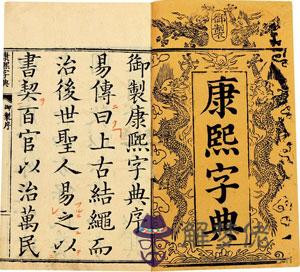 御製
康熙字典
御製康熙字典序
易傳曰上古結繩而
治後世聖人易之以
書契百官以治萬民
康熙字典 御製序
解夢佬